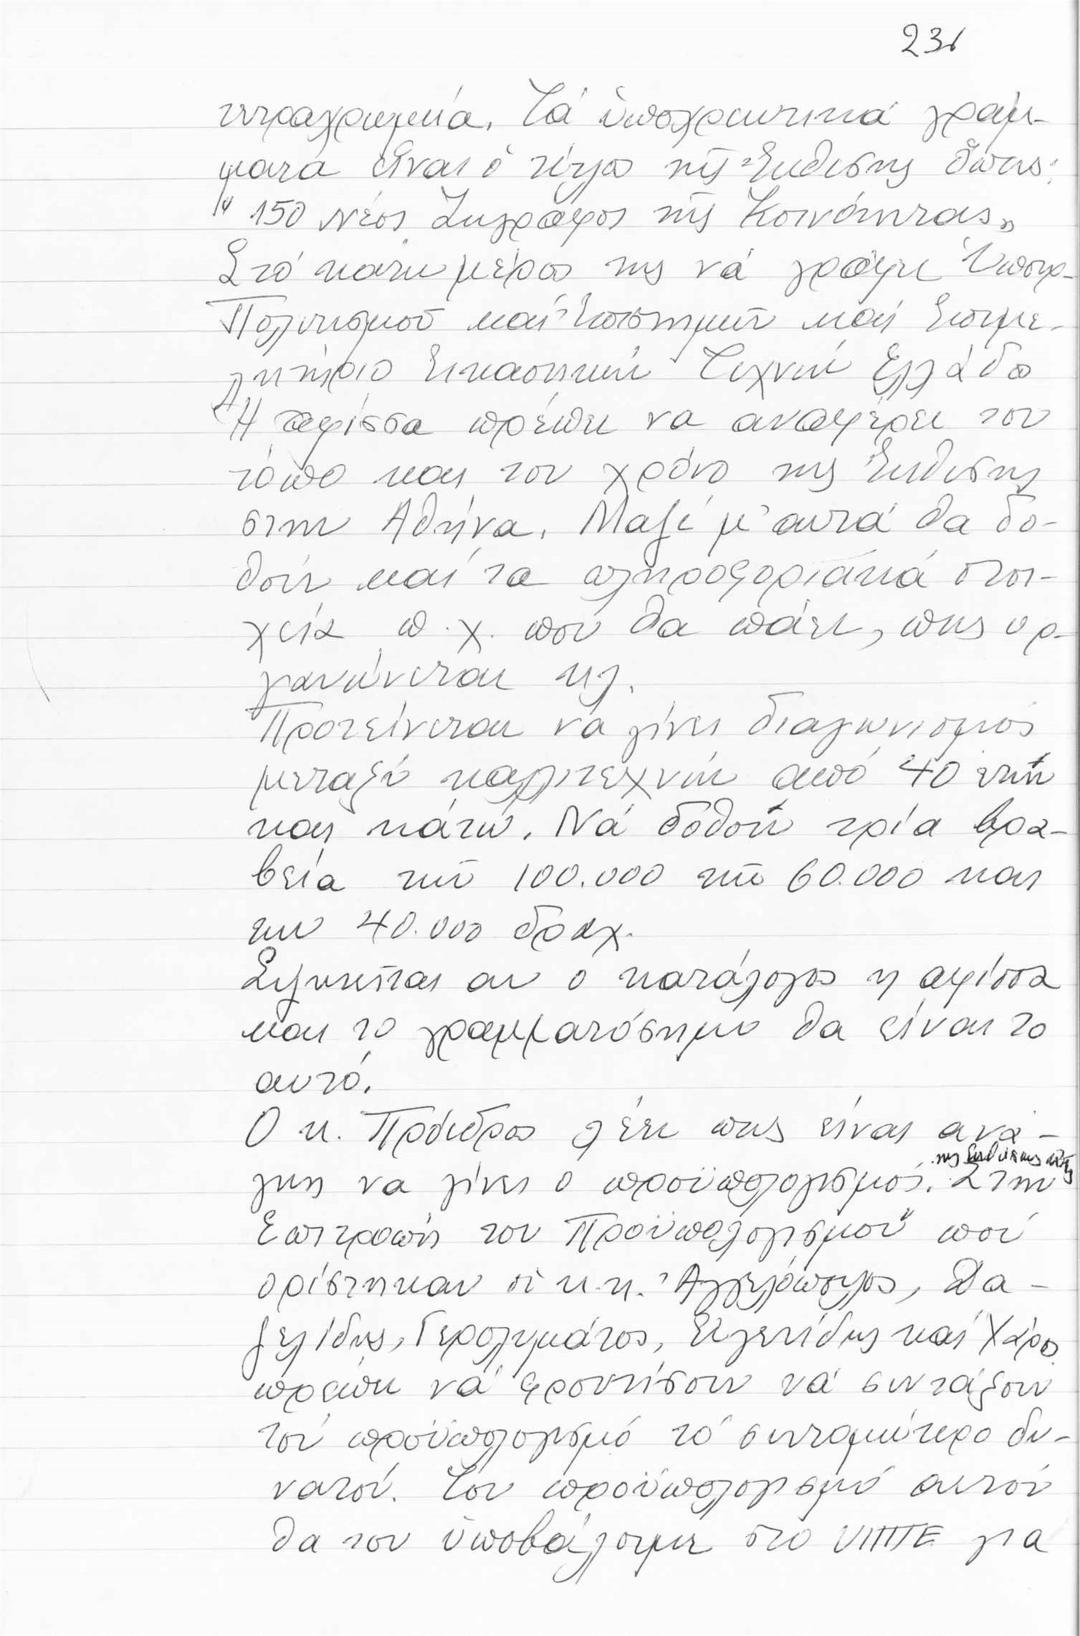 231
τετραχρωμία. Τά ὑποχρεωτικά γράμ-
ματα εἶναι ὁ τίτλος τῆς Ἔκθεσης ὅπως:
"150 Νέοι Ζωγράφοι τῆς Κοινότητας"
Στό κάτω μέρος της νά γράφει Ὑπουρ.
Πολιτισμοῦ καί Ἐπιστημῶν καί Ἐπιμε-
λητήριο Εικαστικών Τεχνών Ελλάδος
Ἡ ἀφίσσα πρέπει να αναφέρει τον
τόπο και τον χρόνο της Έκθεσης
στην Αθήνα. Μαζί μ' αυτά θα δο-
θούν και τα πληροφοριακά στοι-
χεία π.χ. που θα πάει, πως ορ-
γανώνεται κλ.
Προτείνεται να γίνει διαγωνισμός
μεταξύ καλλιτεχνών από 40 ετών
και κάτω. Νά δοθοῦν τρία βρα-
βεία των 100.000 των 60.000 και
των 40.000 δραχ.
Συζητεῖται αν ο κατάλογος η αφίσσα
και το γραμματόσημο θα είναι το
αυτό.
Ο κ. Πρόεδρος λέει πως είναι ανά-
γκη να γίνει ο προϋπολογισμός. της Εκθέσεως Στην
Επιτροπή του Προϋπολογισμού πού
ορίστηκαν οἱ κ.κ. Ἀγγελόπουλος, Βα-
ζελίδης, Γερολυμάτος, Ευγενίδης και Χάρος
πρέπει νά φροντίσουν νά συντάξουν
τον προϋπολογισμό τό συντομώτερο δυ-
νατόν. Τον προϋπολογισμό αυτόν
θα τον ὑποβάλουμε στο ΥΠΠΕ για